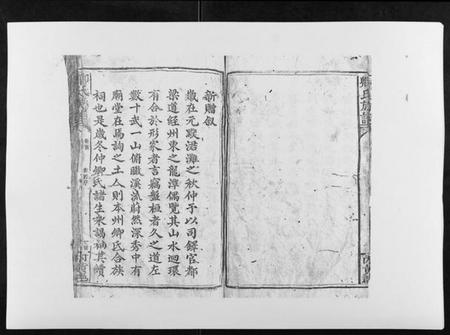 新贈叙
歲在元黓涒灘之秋仲予以司鐸官都
梁道經州東之龍潭偶覽其山水迴環
有合於形家者言竊盤桓者久之道左
數十武一山俯瞰溪流蔚然深秀中有
廟堂在焉詢之土人則本州卿氏合族
祠也是歲冬仲卿氏諸生來謁稱其續
卿氏族譜